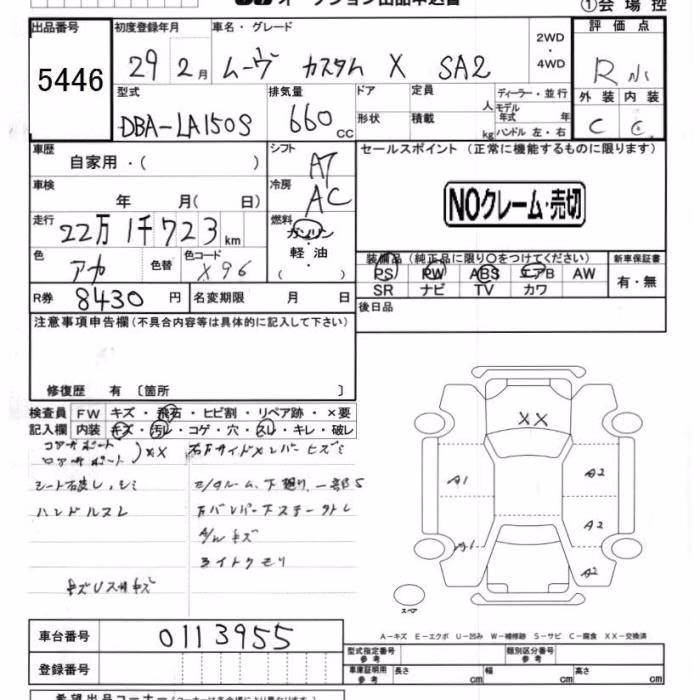 オークション出品申込書
①会場控
出品番号 初度登録年月 車名・グレード 2WD・4WD 評価点
5446 29年 2月 ムーヴ カスタム X SA2 R
型式 排気量 ドア 定員 人 ディーラー・並行 外装 内装
DBA-LA150S 660cc 形状 積載 kg モデル年式 年 ハンドル 左・右 C C
車歴 シフト セールスポイント (正常に機能するものに限ります)
自家用・( ) AT
車検 冷房 NOクレーム・売切
年 月( 日) AC
走行 22万1千723km 燃料 ガソリン
軽油
( )
色 アカ 色替 色コード X96
装備品 (純正品に限り○をつけてください) 新車保証書
PS PW ABS エアB AW 有・無
SR ナビ TV カワ
R券 8430円 名変期限 月 日 後日品
注意事項申告欄 (不具合内容等は具体的に記入して下さい)
修復歴 有 〔箇所 〕
検査員 FW キズ・飛石・ヒビ割・リペア跡・×要
記入欄 内装 キズ・汚レ・コゲ・穴・スレ・キレ・破レ
コアサポート
ロアサポート )XX
ハンドルスレ
XX
A1
A2
A2
A1
A2
スペア
A-キズ E-エクボ U-凹み W-補修跡 S-サビ C-腐食 XX-交換済
車台番号 0113955
型式指定番号 参考 類別区分番号 参考
登録番号 車庫証明用 参考 長さ cm 幅 cm 高さ cm
希望出品コーナー